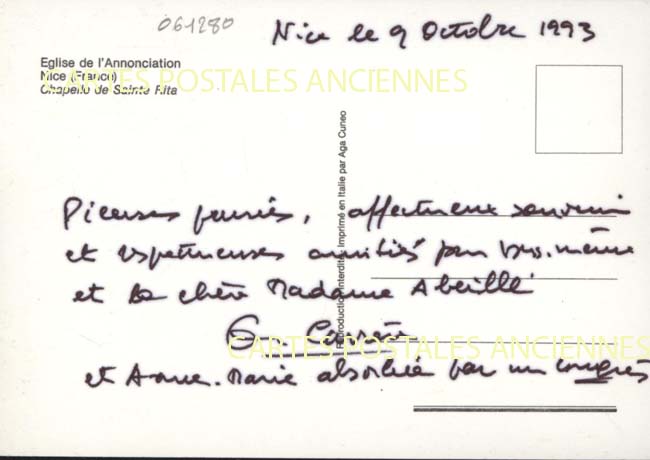 061280
Nice le 9 Octobre 1993
Eglise de l'Annonciation
Nice (France)
Chapelle de Sainte Rita
CARTES POSTALES ANCIENNES
Reproduction interdite. Imprimé en Italie par Aga Cuneo
Pieuses pensées, affectueux souvenir
et respectueuses amitiés pour vous-même
et la chère Madame Abeille
CARTES POSTALES ANCIENNES
et Anne-Marie absorbée par un congrès